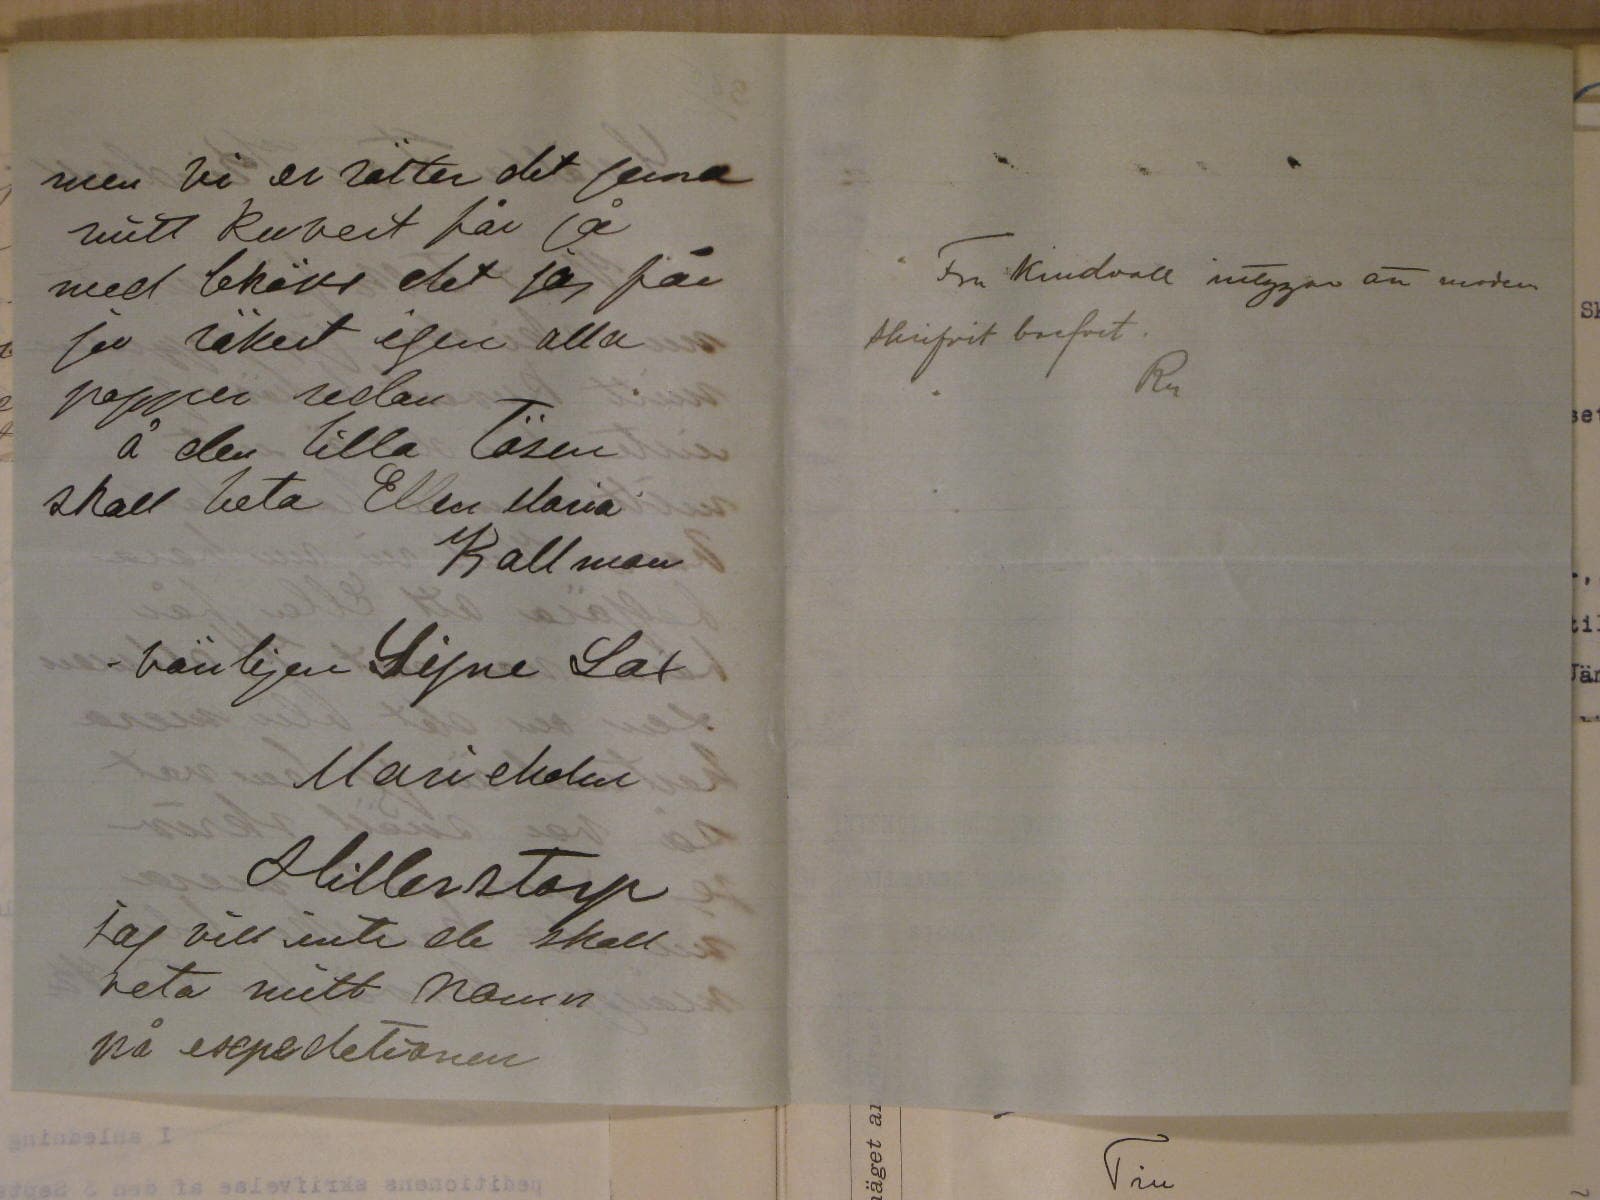 men vi er rätter det gerna
mitt kuvert får jå
med det jag får
ju igen alla
papper sedan
å den lilla Tösen
skall heta Ellen Maria
Kallman
vänligen Signe Sax
Marieholm
Hillerstorp
jag vill inte de skall
veta mitt namn
på expedetionen
Fru Kindvall intygar att modern
skrifvit brefvet.
Rn
I anledning
peditionens skrifvelse af den 3 Septe
näget
Tin
Sk
set
til
Jär